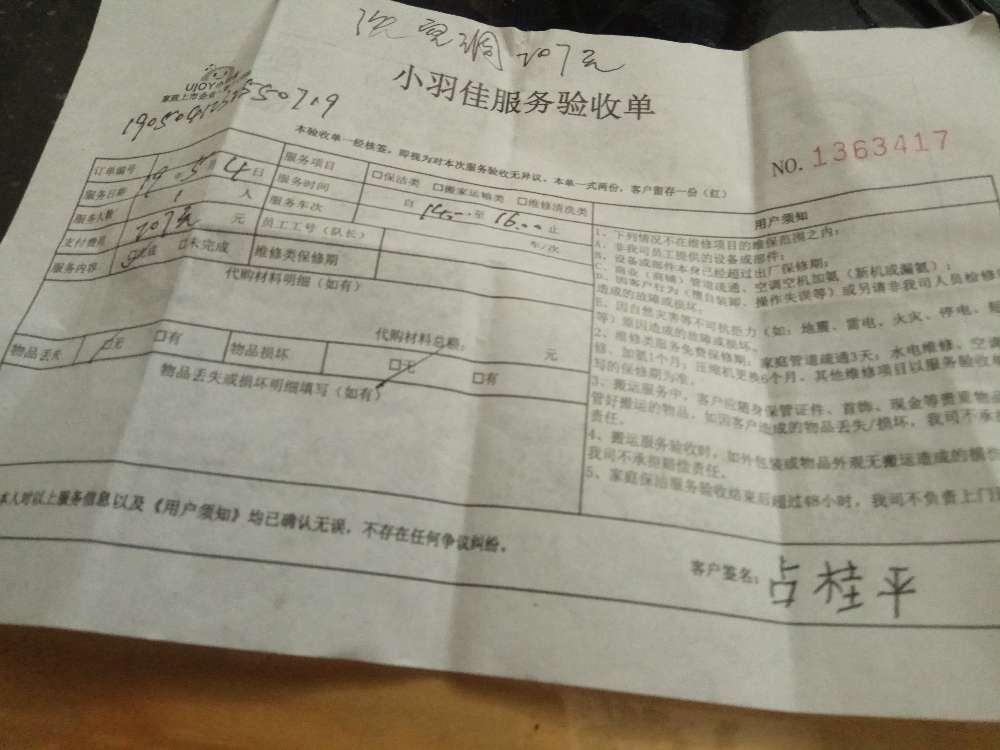 207元
UJOY
家政上市企业
小羽佳服务验收单
NO. 1363417
本验收单一经核签，即视为对本次服务验收无异议。本单一式两份，客户留存一份（红）
订单编号
服务项目 □保洁类 □搬家运输类 □维修清洗类
服务日期 19年5月4日 服务时间 自 14:00 至 16:00 止
服务人数 1 人 服务车次 车/次
支付费用 207元 元 员工工号（队长）
服务内容 完成 □未完成 维修类保修期
代购材料明细（如有）
代购材料总额： 元
物品丢失 □无 □有 物品损坏 □无 □有
物品丢失或损坏明细填写（如有）
用户须知
1、下列情况不在维修项目的维保范围之内：
A、非我司员工提供的设备或部件；
B、设备或部件本身已经超过出厂保修期；
C、商业（商铺）管道疏通、空调空机加氨（新机或漏氨）；
D、因客户行为（擅自装卸、操作失误等）或另请非我司人员检修
造成的故障或损坏；
E、因自然灾害等不可抗拒力（如：地震、雷电、火灾、停电、
等）原因造成的故障或损坏。
2、维修类服务免费保修期，家庭管道疏通3天；水电维修、空调
修、加氨1个月；压缩机更换6个月。其他维修项目以服务验收
写的保修期为准。
3、搬运服务中，客户应随身保管证件、首饰、现金等贵重物品
管好搬运的物品，如因客户造成的物品丢失/损坏，我司不承
责任。
4、搬运服务验收时，如外包装或物品外观无搬运造成的损
我司不承担赔偿责任。
5、家庭保洁服务验收结束后超过48小时，我司不负责上门
本人对以上服务信息以及《用户须知》均已确认无误，不存在任何争议纠纷。
客户签名：占桂平